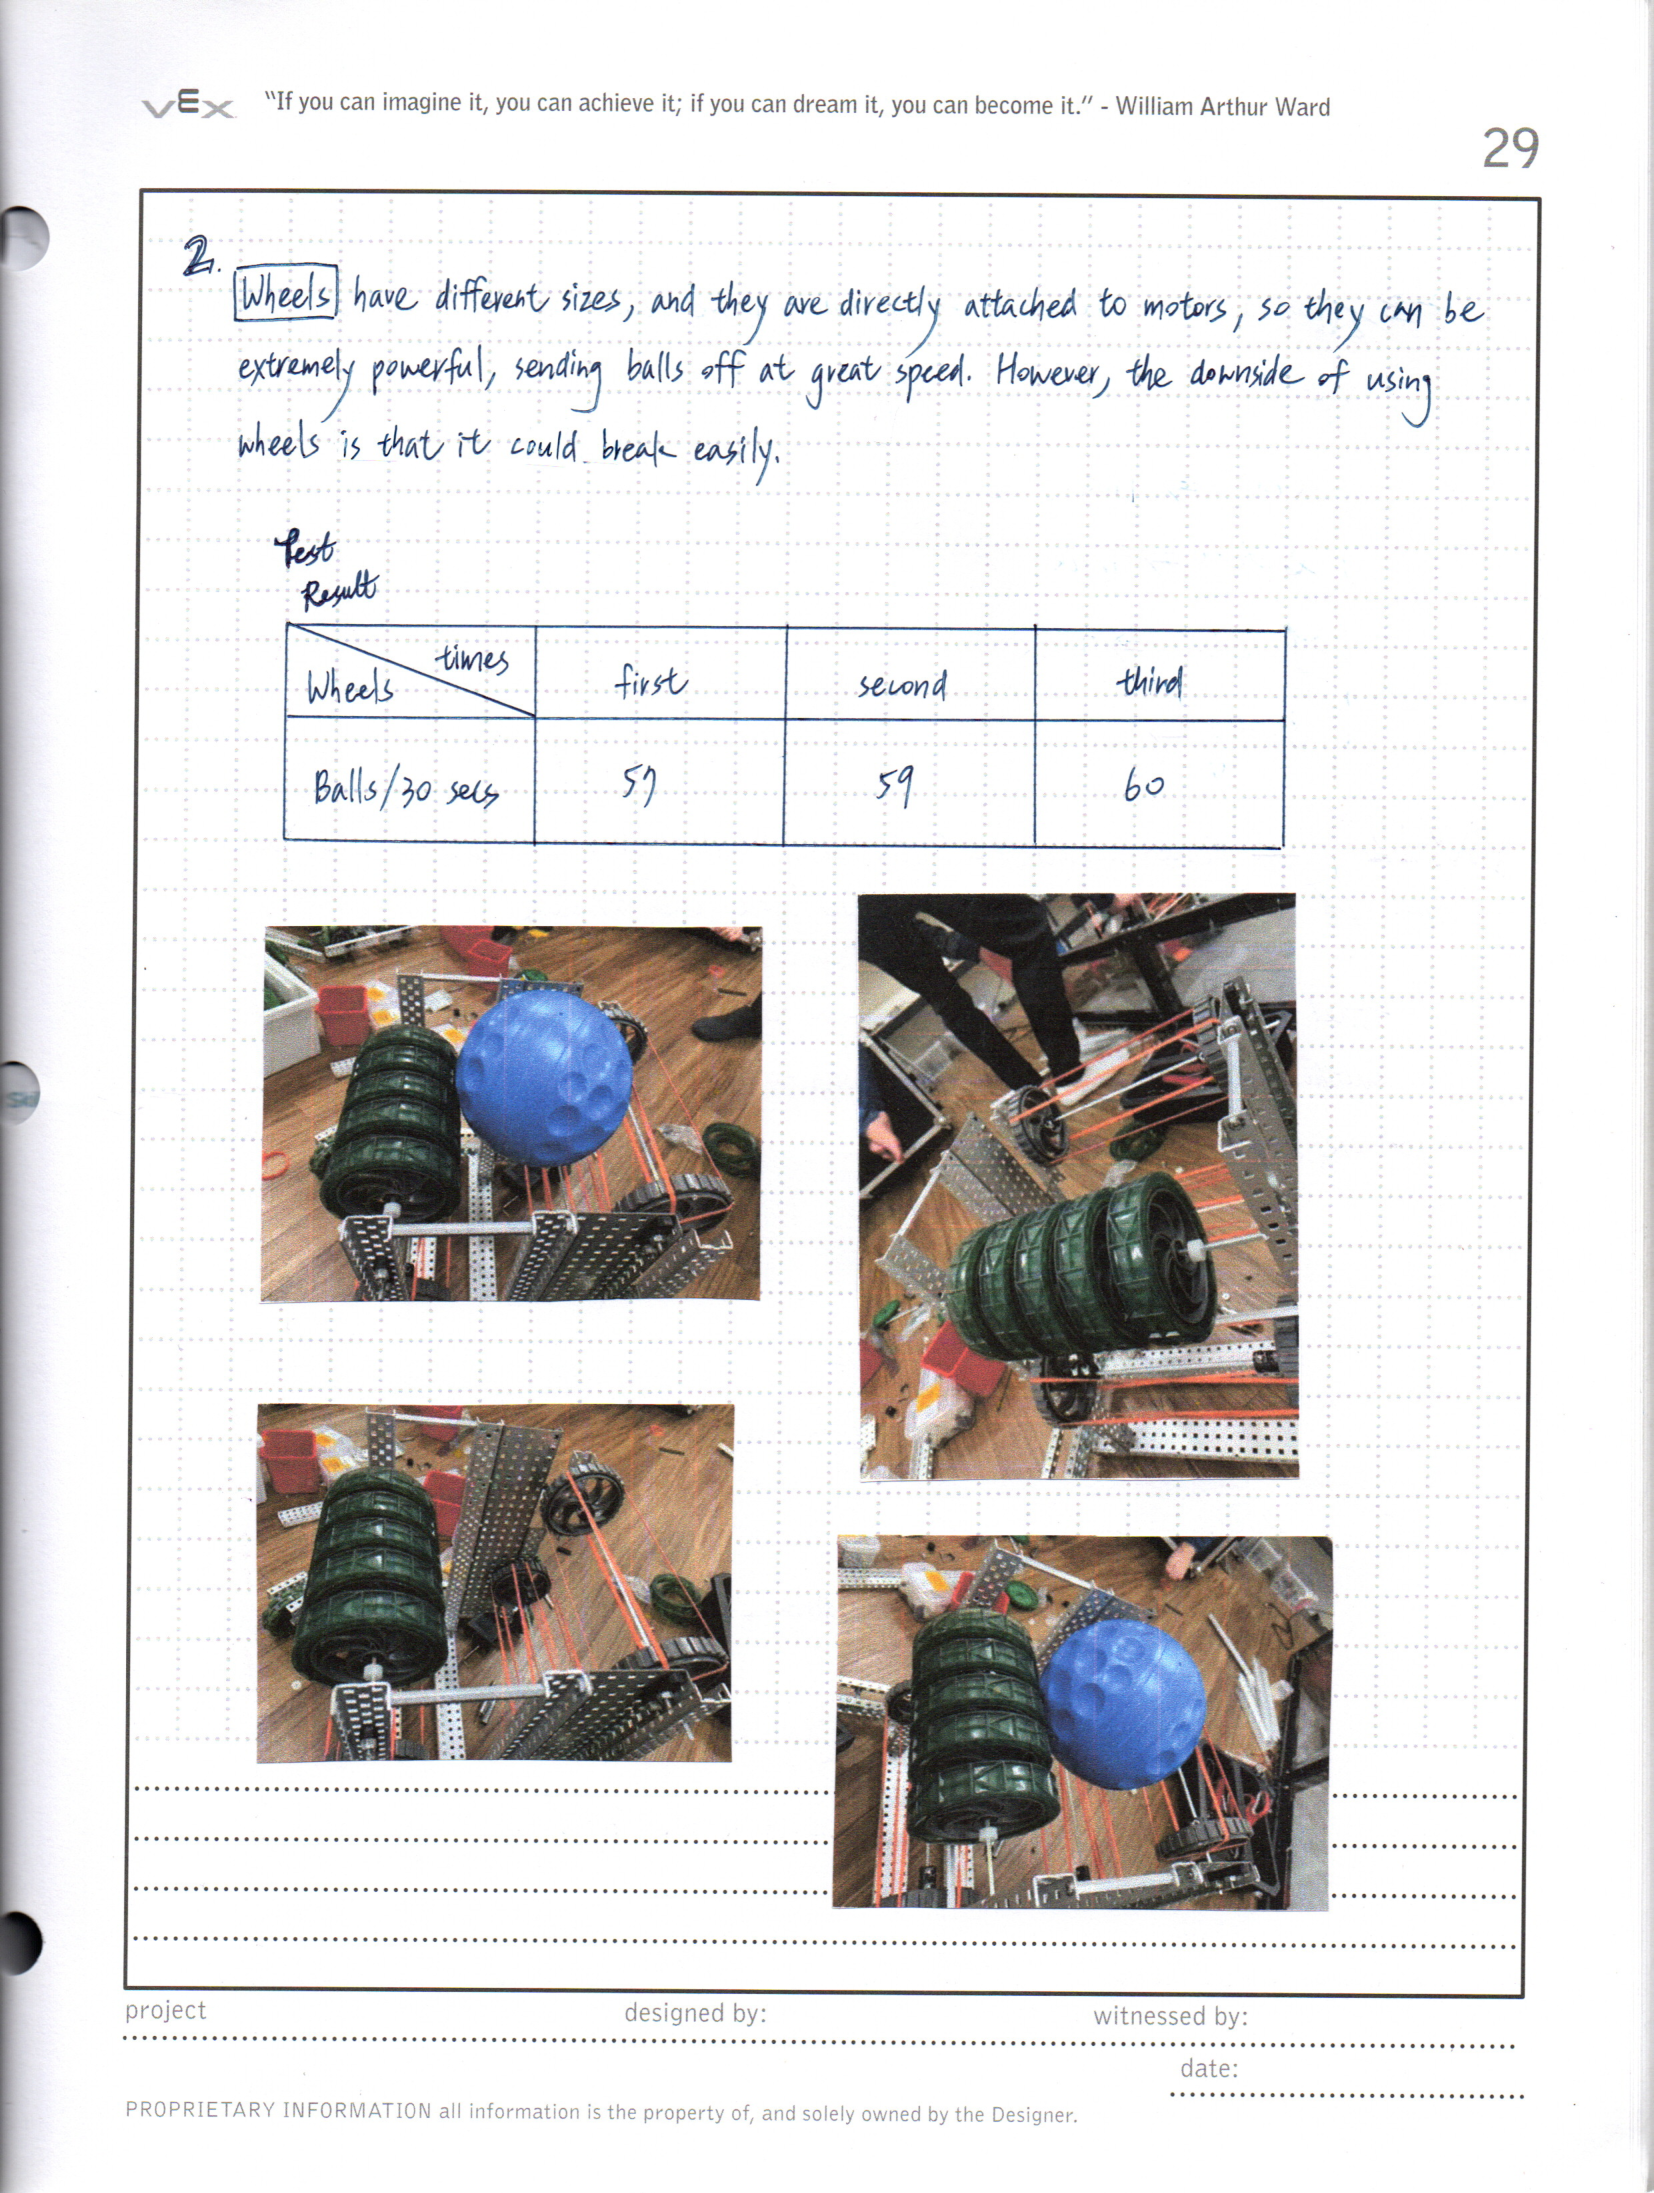 VEX "If you can imagine it, you can achieve it; if you can dream it, you can become it." - William Arthur Ward
29
2.
Wheels have different sizes, and they are directly attached to motors, so they can be
extremely powerful, sending balls off at great speed. However, the downside of using
wheels is that it could break easily.
Test
Result
times
Wheels first second third
Balls/30 secs 57 59 60
project designed by: witnessed by:
date:
PROPRIETARY INFORMATION all information is the property of, and solely owned by the Designer.